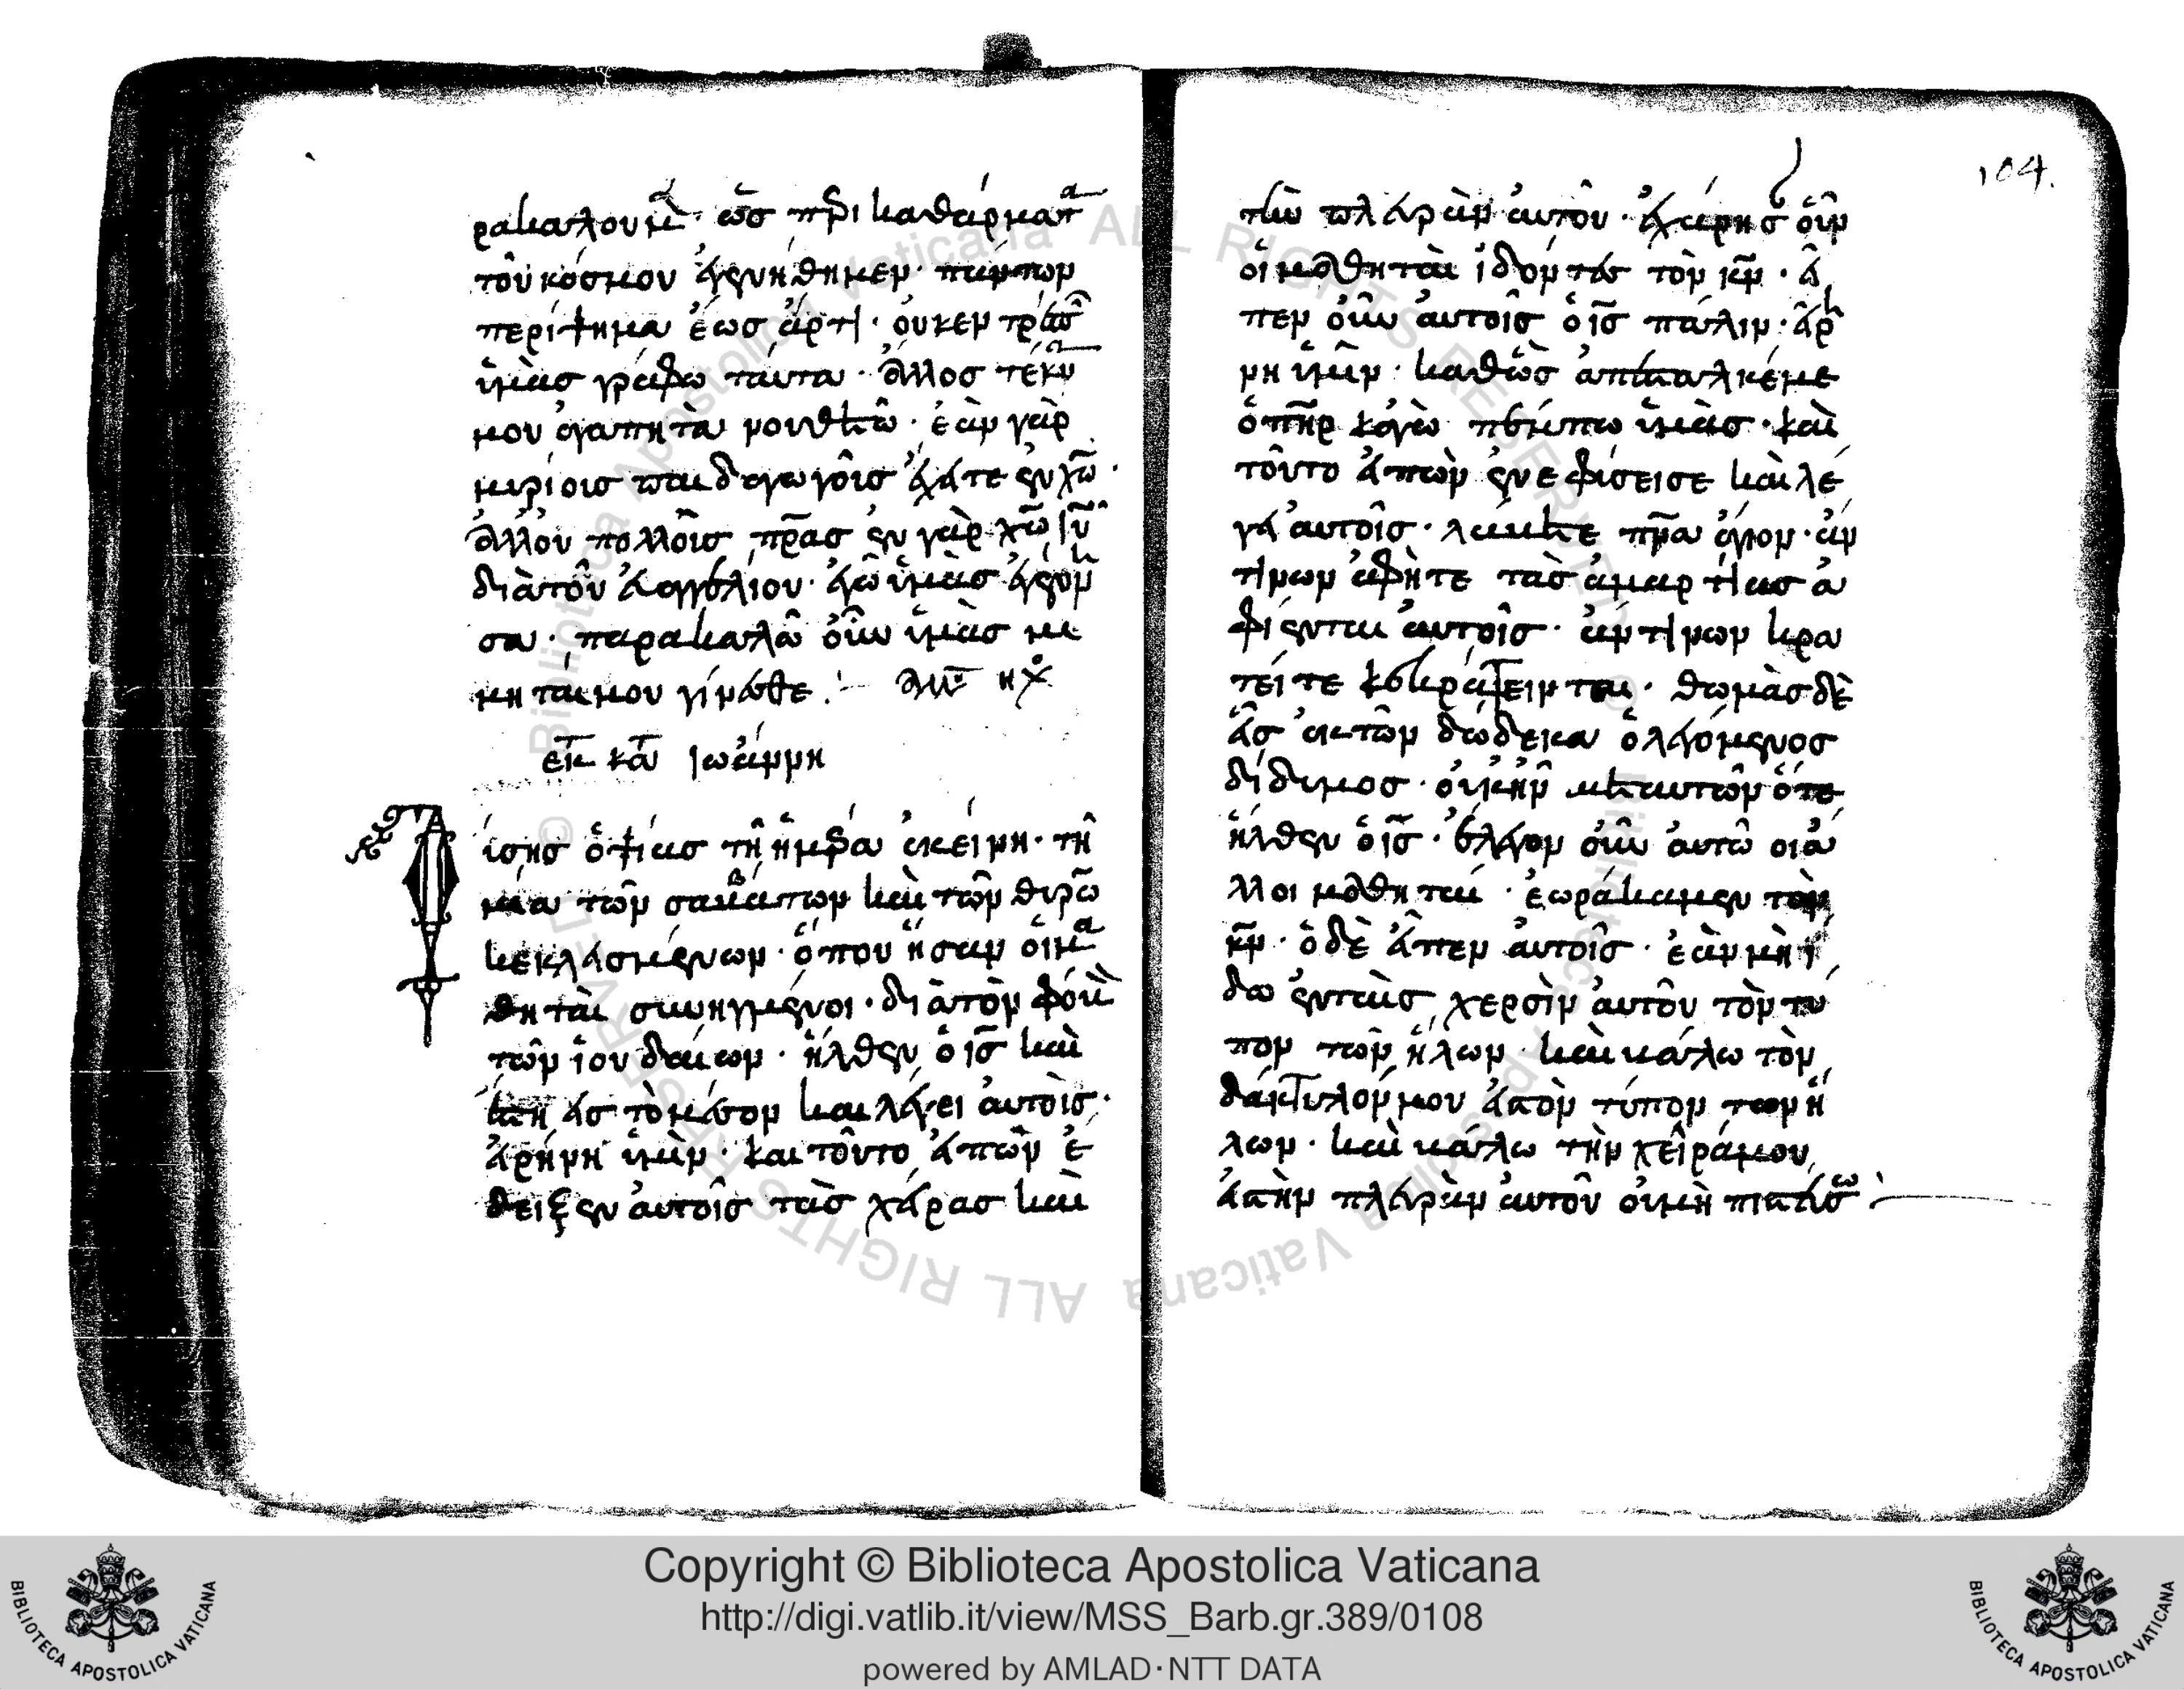 ρακαλουμεν· ὡς περικαθάρματα
τοῦ κόσμου ἐγενήθημεν· πάντων
περίψημα ἕως ἄρτι· οὐκ ἐντρέπων
ὑμᾶς γράφω ταῦτα· ἀλλ' ὡς τέκνα
μου ἀγαπητὰ νουθετῶ· ἐὰν γὰρ
μυρίοις παιδαγωγοῖς ἔχητε ἐν χω·
ἀλλ' οὐ πολλοῖς πρας ἐν γὰρ χω ιυ
διὰ τοῦ εὐαγγελίου· ἐγὼ ὑμᾶς ἐγέννη
σα· παρακαλῶ οὖν ὑμᾶς μι
μηταί μου γίνεσθε· ἀλλ ηχ
εκ κατ ἰωάννη
ίσης ὀψίας τῇ ἡμέρα ἐκείνη· τῇ
μια τῶν σαββάτων καὶ τῶν θυρῶ
κεκλεισμένων· ὅπου ἦσαν οἱ μα
θηταὶ συνηγμένοι· διὰ τὸν φόβον
τῶν ἰουδαίων· ἦλθεν ὁ ις καὶ
ἔστη εἰς τὸ μέσον καὶ λέγει αὐτοῖς·
εἰρήνη ὑμῖν· καὶ τοῦτο εἰπὼν ἔ
δειξεν αὐτοῖς τὰς χεῖρας καὶ
104.
τὴν πλευρὰν αὐτοῦ· ἐχάρησαν οὖν
οἱ μαθηταὶ ἰδόντες τὸν κν· εἶ
πεν οὖν αὐτοῖς ὁ ις πάλιν· εἰρή
νη ὑμῖν· καθὼς ἀπέσταλκέ με
ὁ πηρ κἀγὼ πέμπω ὑμᾶς· καὶ
τοῦτο εἰπὼν ἐνεφύσεισε καὶ λέ
γει αὐτοῖς· λάβετε πνα ἅγιον· ἄν
τινων ἀφῆτε τὰς ἁμαρτίας ἀ
φίενται αὐτοῖς· ἄν τινων κρα
τεῖτε κεκράτεινται· θωμᾶς δὲ
εἷς ἐκ τῶν δώδεκα ὁ λεγόμενος
δίδυμος· οὐκ ἦν μετ' αὐτῶν ὅτε
ἦλθεν ὁ ις· ἔλεγον οὖν αὐτῶ οἱ ἄ
λλοι μαθηταί· ἑωράκαμεν τὸν
κν· ὁ δὲ εἶπεν αὐτοῖς· ἐὰν μὴ ἴ
δω ἐν ταῖς χερσὶν αὐτοῦ τὸν τύ
πον τῶν ἥλων· καὶ βάλω τὸν
δάκτυλόν μου εἰς τὸν τύπον τῶν ἥ
λων· καὶ βάλω τὴν χεῖρά μου
εἰς τὴν πλευρὰν αὐτοῦ οὐ μὴ πιστεύσω
Copyright © Biblioteca Apostolica Vaticana
http://digi.vatlib.it/view/MSS_Barb.gr.389/0108
powered by AMLAD·NTT DATA
BIBLIOTECA APOSTOLICA VATICANA
BIBLIOTECA APOSTOLICA VATICANA